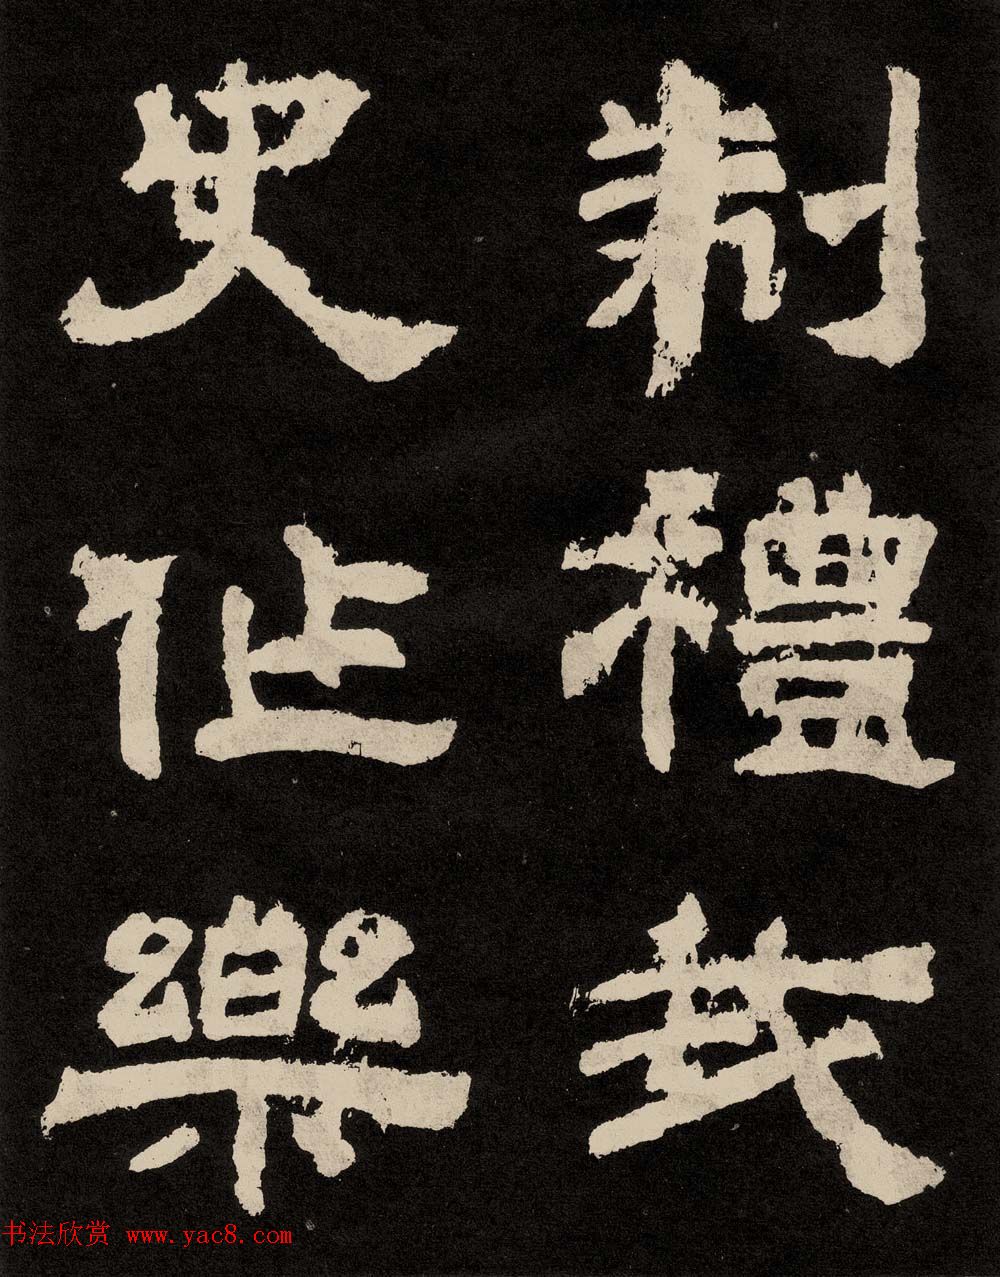 制禮我
史作樂
书法欣赏 www.yac8.com